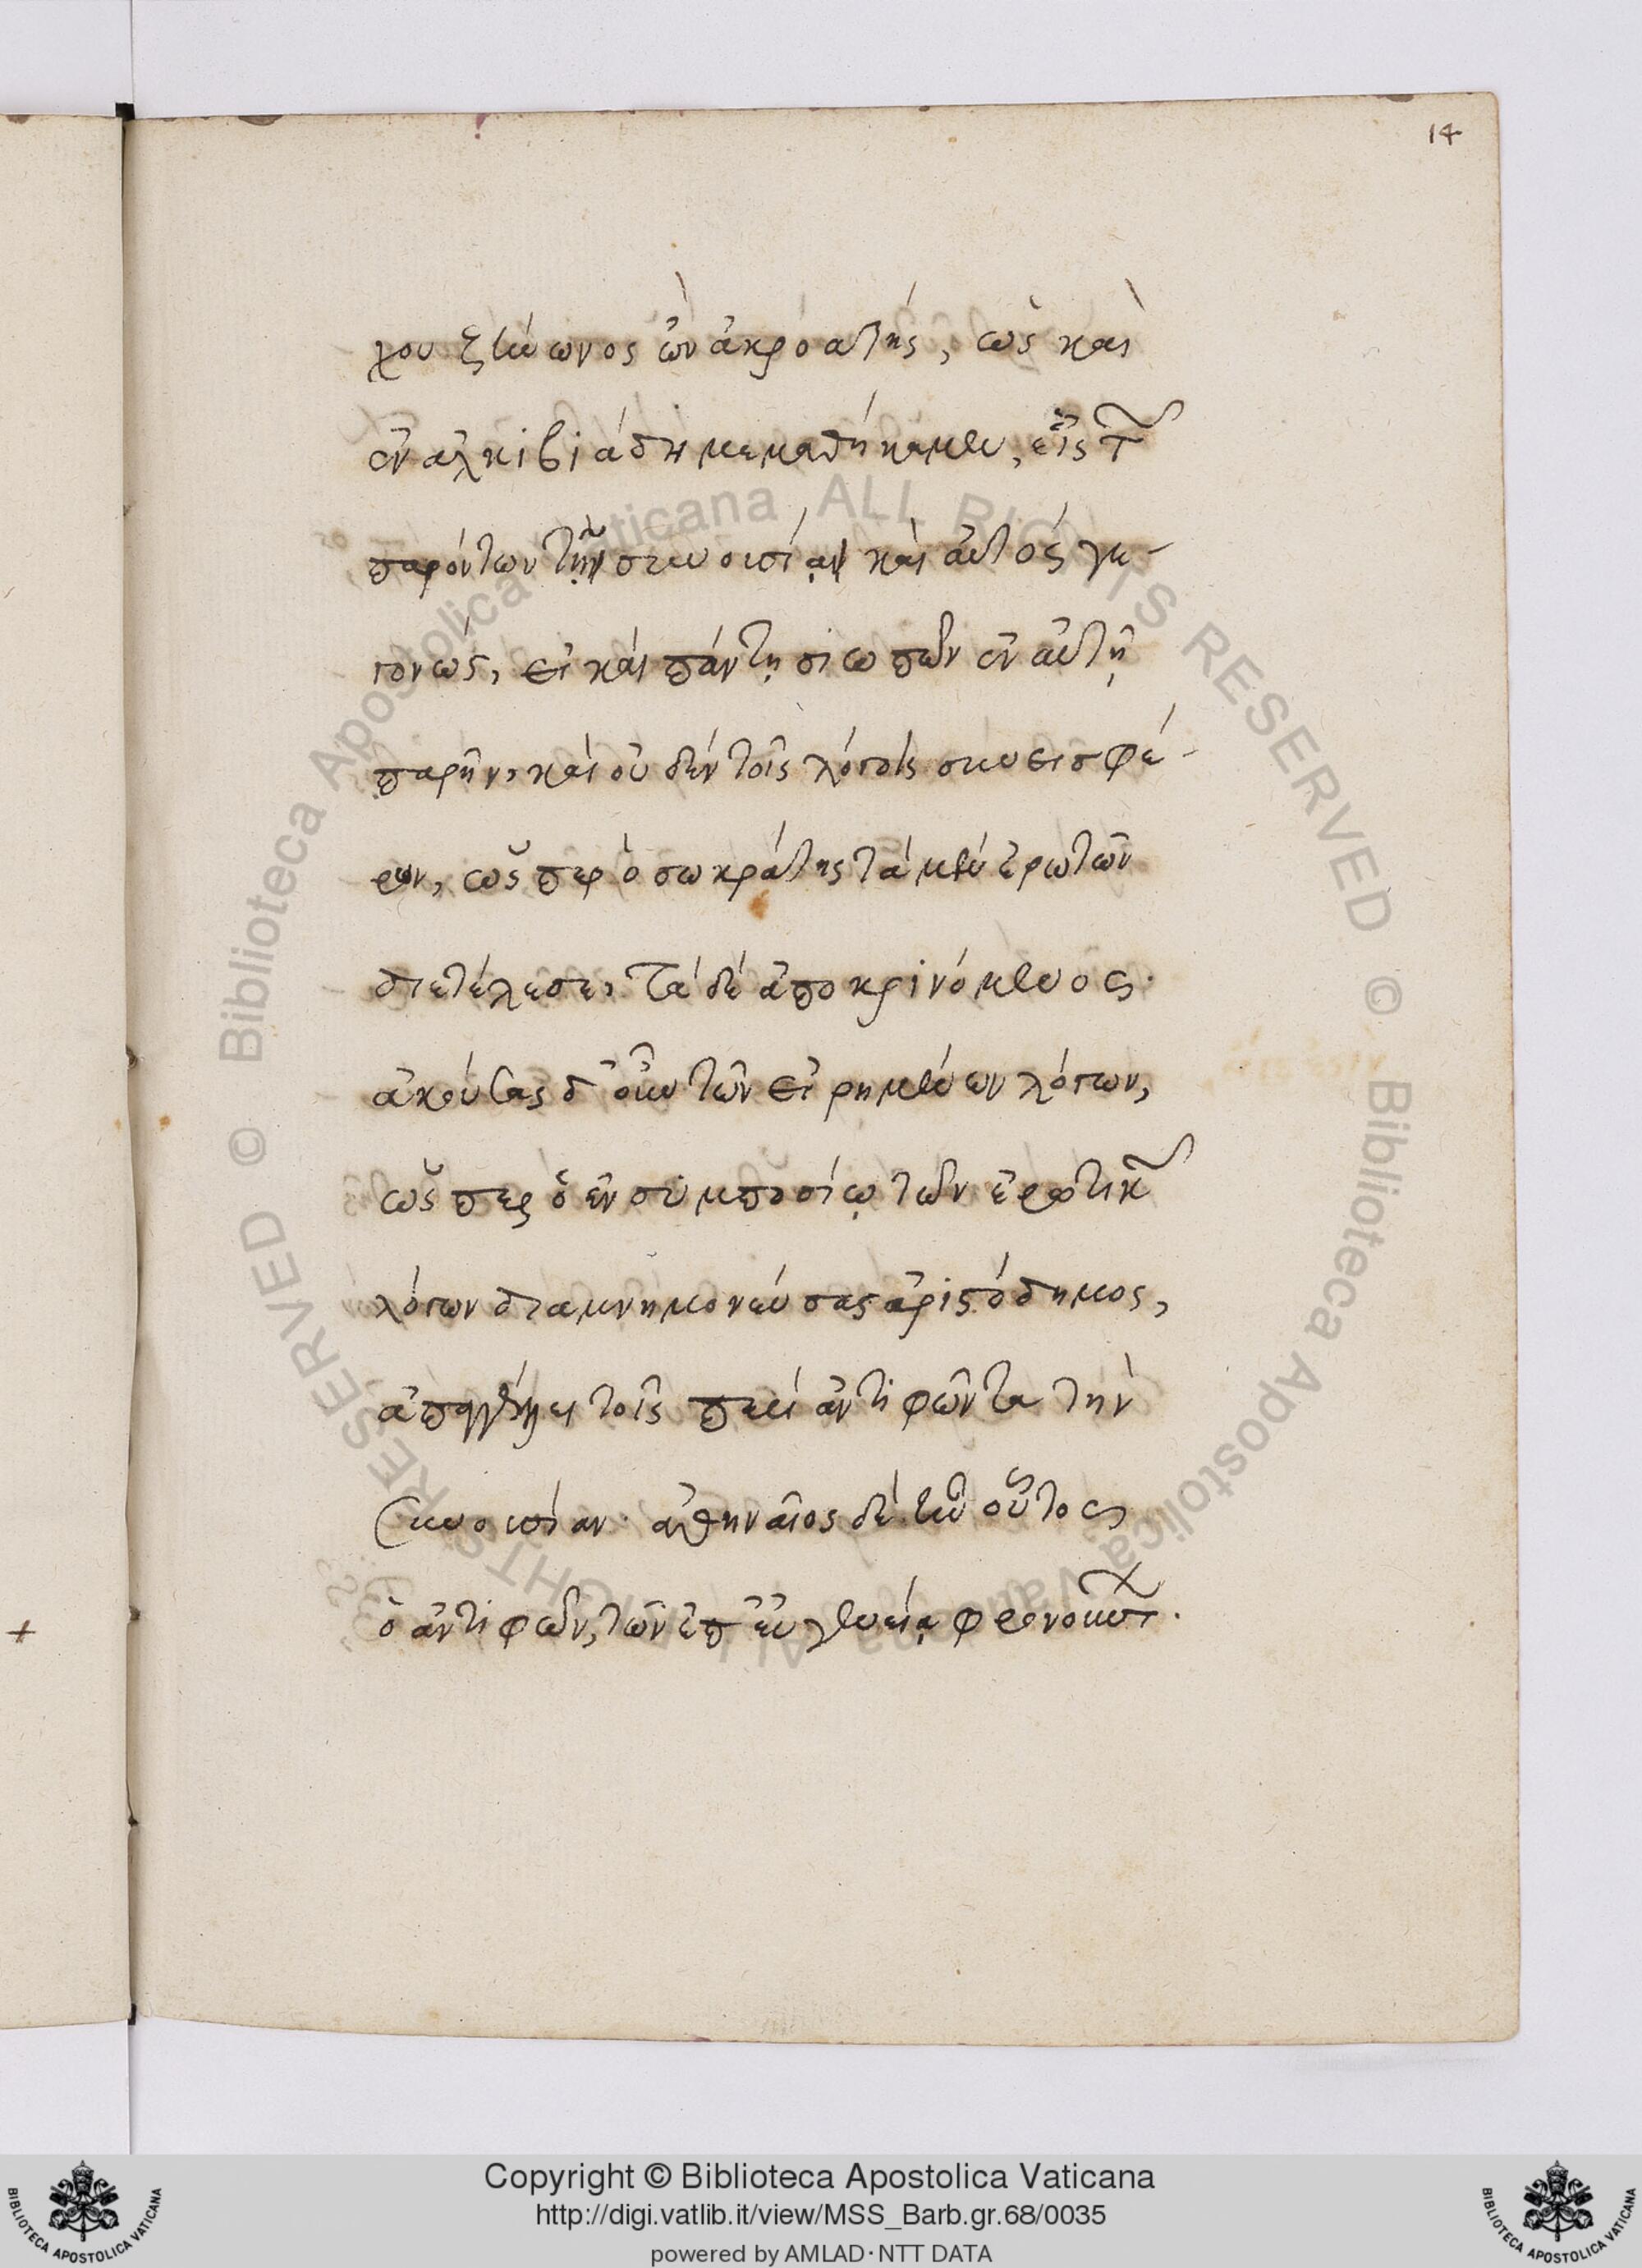 14
χου ζήνωνος ὢν ἀκροατής, ὡς καὶ
ἐν ἀλκιβιάδη μεμαθήκαμεν, εἷς τῶν
παρόντων τὴν συνουσίαν καὶ αὐτὸς γε-
γονώς, εἰ καὶ πάντῃ σιωπῶν ἐν αὐτῇ
παρῆν, καὶ οὐδὲν τοῖς λόγοις συνεισφέ-
ρων, ὥσπερ ὁ σωκράτης τὰ μὲν ἐρωτῶν
διετέλεσε, τὰ δὲ ἀποκρινόμενος.
ἀκούσας δ' οὖν τῶν εἰρημένων λόγων,
ὥσπερ ὁ ἐν συμποσίῳ τῶν ἐρωτικῶν
λόγων διαμνημονεύσας ἀριστόδημος,
ἀπαγγέλλει τοῖς περὶ ἀντιφῶντα τὴν
συνουσίαν. ἀθηναῖος δὲ ἦν οὗτος
ὁ ἀντιφῶν, τῶν ἐπ' εὐγενείᾳ φρονούντων.
© Biblioteca Apostolica Vaticana ALL RIGHTS RESERVED
© Biblioteca Apostolica Vaticana ALL RIGHTS RESERVED
Copyright © Biblioteca Apostolica Vaticana
http://digi.vatlib.it/view/MSS_Barb.gr.68/0035
powered by AMLAD·NTT DATA
BIBLIOTECA APOSTOLICA VATICANA
BIBLIOTECA APOSTOLICA VATICANA